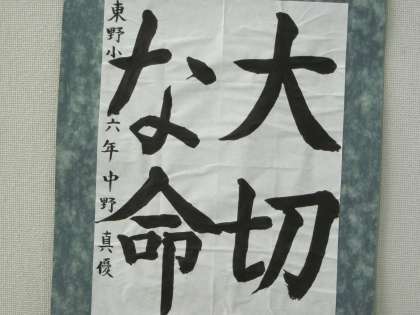 大切
な命
東野小六年中野真優